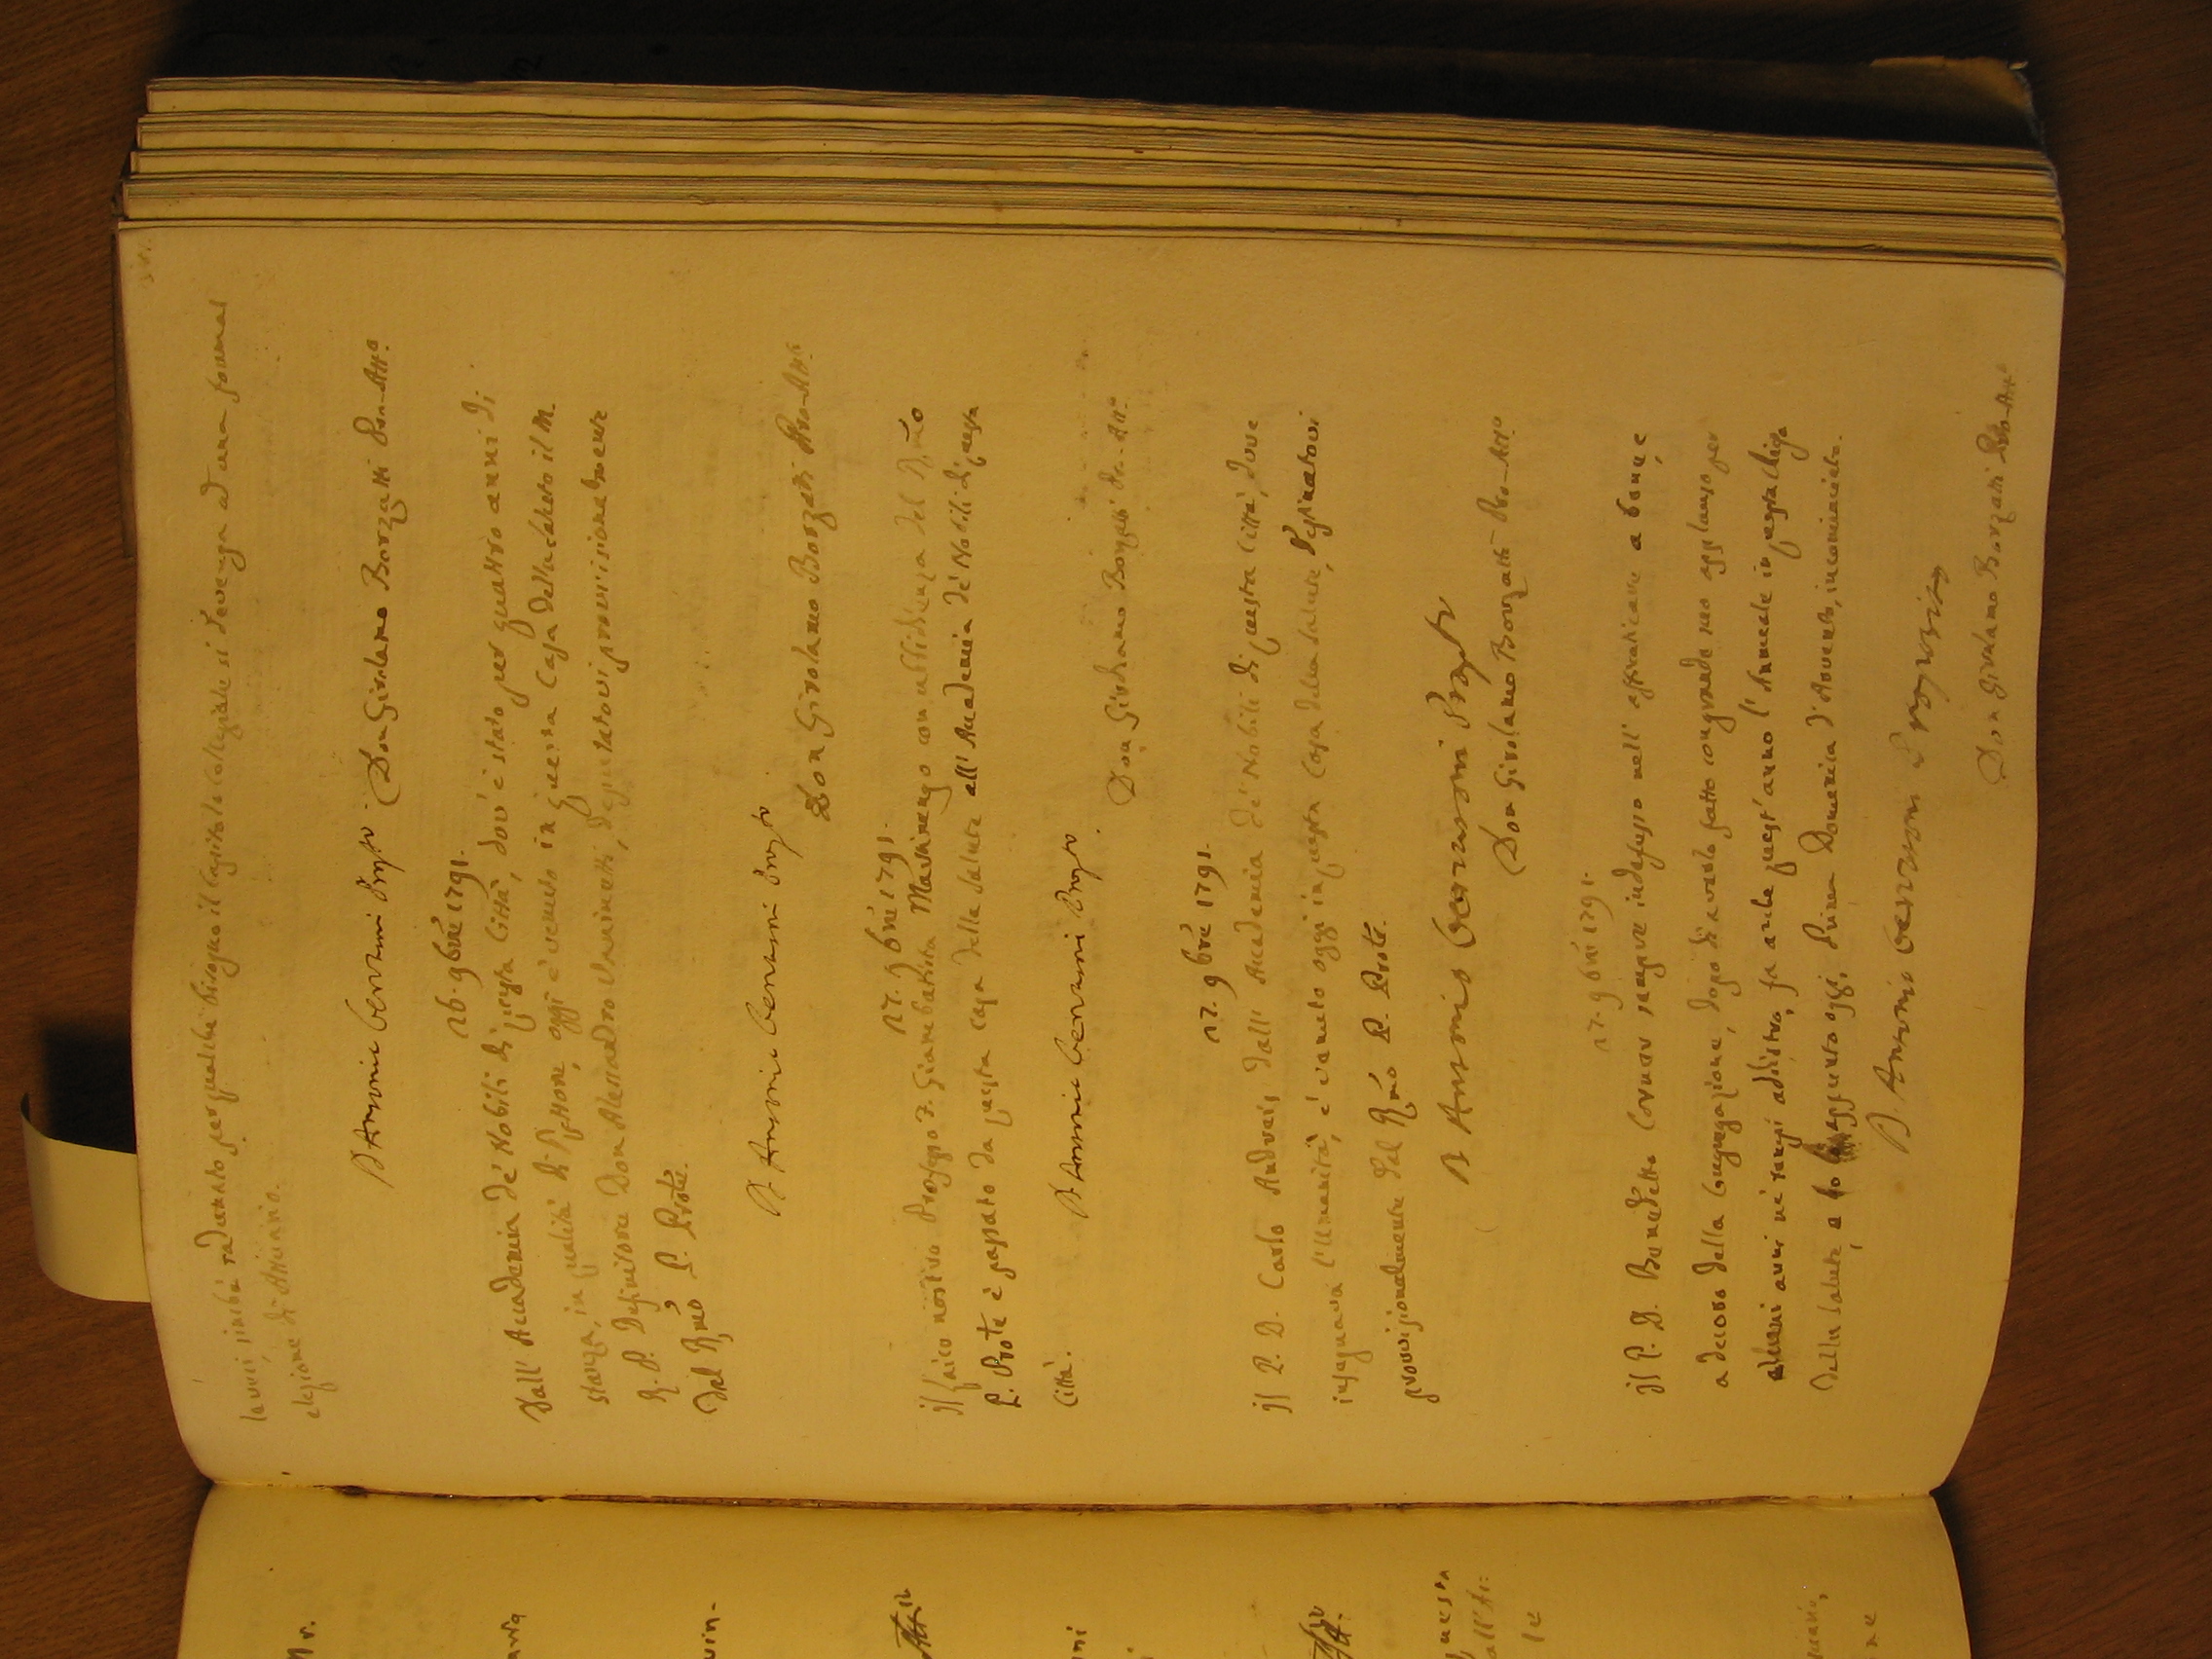 lauri, sinché radunato per qualche bisogno il Capitolo Collegiale si divenga ad una formal
elezione di Attuario.
D. Antonio Cervini Prop.to
Don Girolamo Borzatti Pro-Att.o
26. 9bre 1791.
Dall' Accademia de' Nobili di questa Città, dov' è stato per quattro anni di
stanza, in qualità di Prefetto, oggi è venuto in questa Casa della Salute il M.
R. P. Definitore Don Alessandro, deputatovi provvisionalmente
dal Rmo P. Prote.
D. Antonio Cervini Prop.to
Don Girolamo Borzatti Pro-Att.o
27. 9bre 1791.
il laico nostro Professo F. Giambatista Martinengo con ubbidienza del Rmo
P. Prote è passato da questa casa della Salute all' Accademia de' Nobili di questa
Città.
D. Antonio Cervini Prop.to
Don Girolamo Borzatti Pro-Att.o
27. 9bre 1791.
il P. D. Carlo Andreis dall' Accademia de' Nobili di questa Città, dove
insegnava l'Umanità, è venuto oggi in questa Casa della Salute, destinatovi
provvisionalmente dal Rmo P. Prote.
D. Antonio Cervini Prop.to
Don Girolamo Borzatti Pro-Att.o
27. 9bre 1791.
il P. D. Benedetto Cornar sempre indefesso nell' affaticare a bene, e
a decoro della Congregazione, dopo d'averlo fatto con grande suo applauso per
alcuni anni ne' tempi addietro, fa anche quest'anno l'Annuale in questa Chiesa
della Salute, e lo appunto oggi, Prima Domenica d'Avvento, incominciato.
D. Antonio Cervini Prop.to
Don Girolamo Borzatti Pro-Att.o